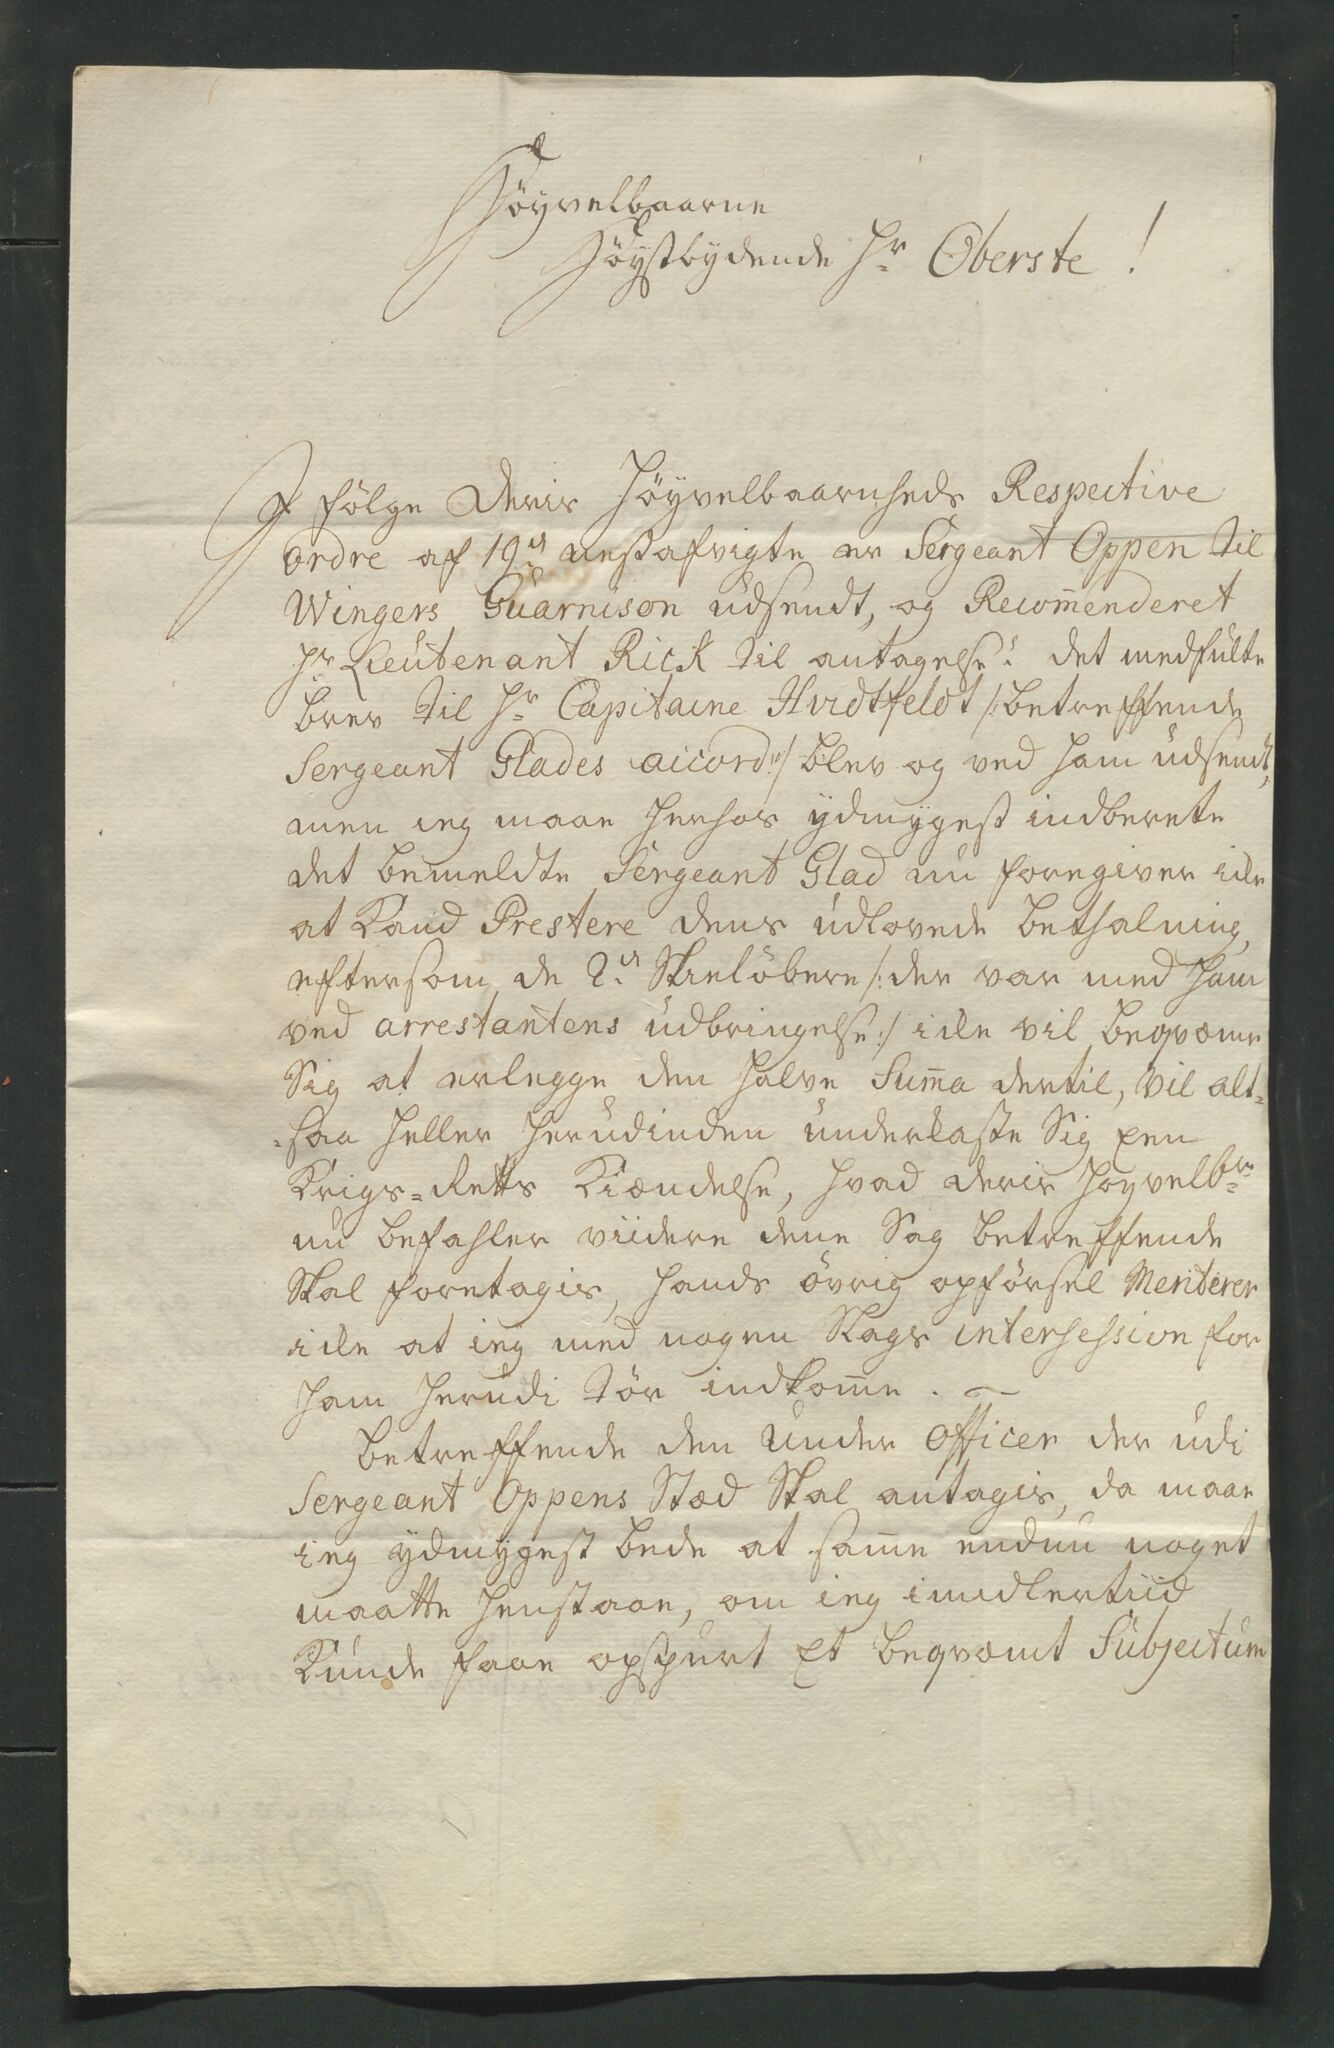 Höyvelbaarne
Höystbydende Hr Oberste!
I fölge Deris Höyvelbaarnheds Respective
ordre af 19de nestafvigte er Sergeant Oppen til
Wingers Guarnison udsendt, og Recom̄enderet
Hr Lieutenant Rick til antagelse: det medfulte
brev til Hr Capitaine Hvidtfeldt /:betreffende
Sergeant Glades accord:/ blev og ved ham udsendt,
men ieg maae herhos ydmygest indberete
det bemeldte Sergeant Glad nu foregiver icke
at kand Prestere dens udlovede bethalning,
eftersom de 2de Skielöbere /:der var med ham
ved arrestantens udbringelse:/ icke vil beqvæme
Sig at erlegge den halve Sum̄a dertil, vil alt-
-saa heller herudinden underkaste Sig een
Krigs-Retts Kiændelse, hvad deris Höyvelb:hd
nu befahler viidere dene Sag betreffende
Skal foretagis, hands övrig opförsel Meriterer
icke at ieg med nogen Slags intersession for
ham herudi tör indkom̄e.
Betreffende den Under Officer der udi
Sergeant Oppens Stæd Skal antagis, da maae
ieg ydmygest bede at sam̄e endnu noget
maatte henstaae, om ieg imidlertiid
Kunde faae opspurt Et beqvæmt Subjectum